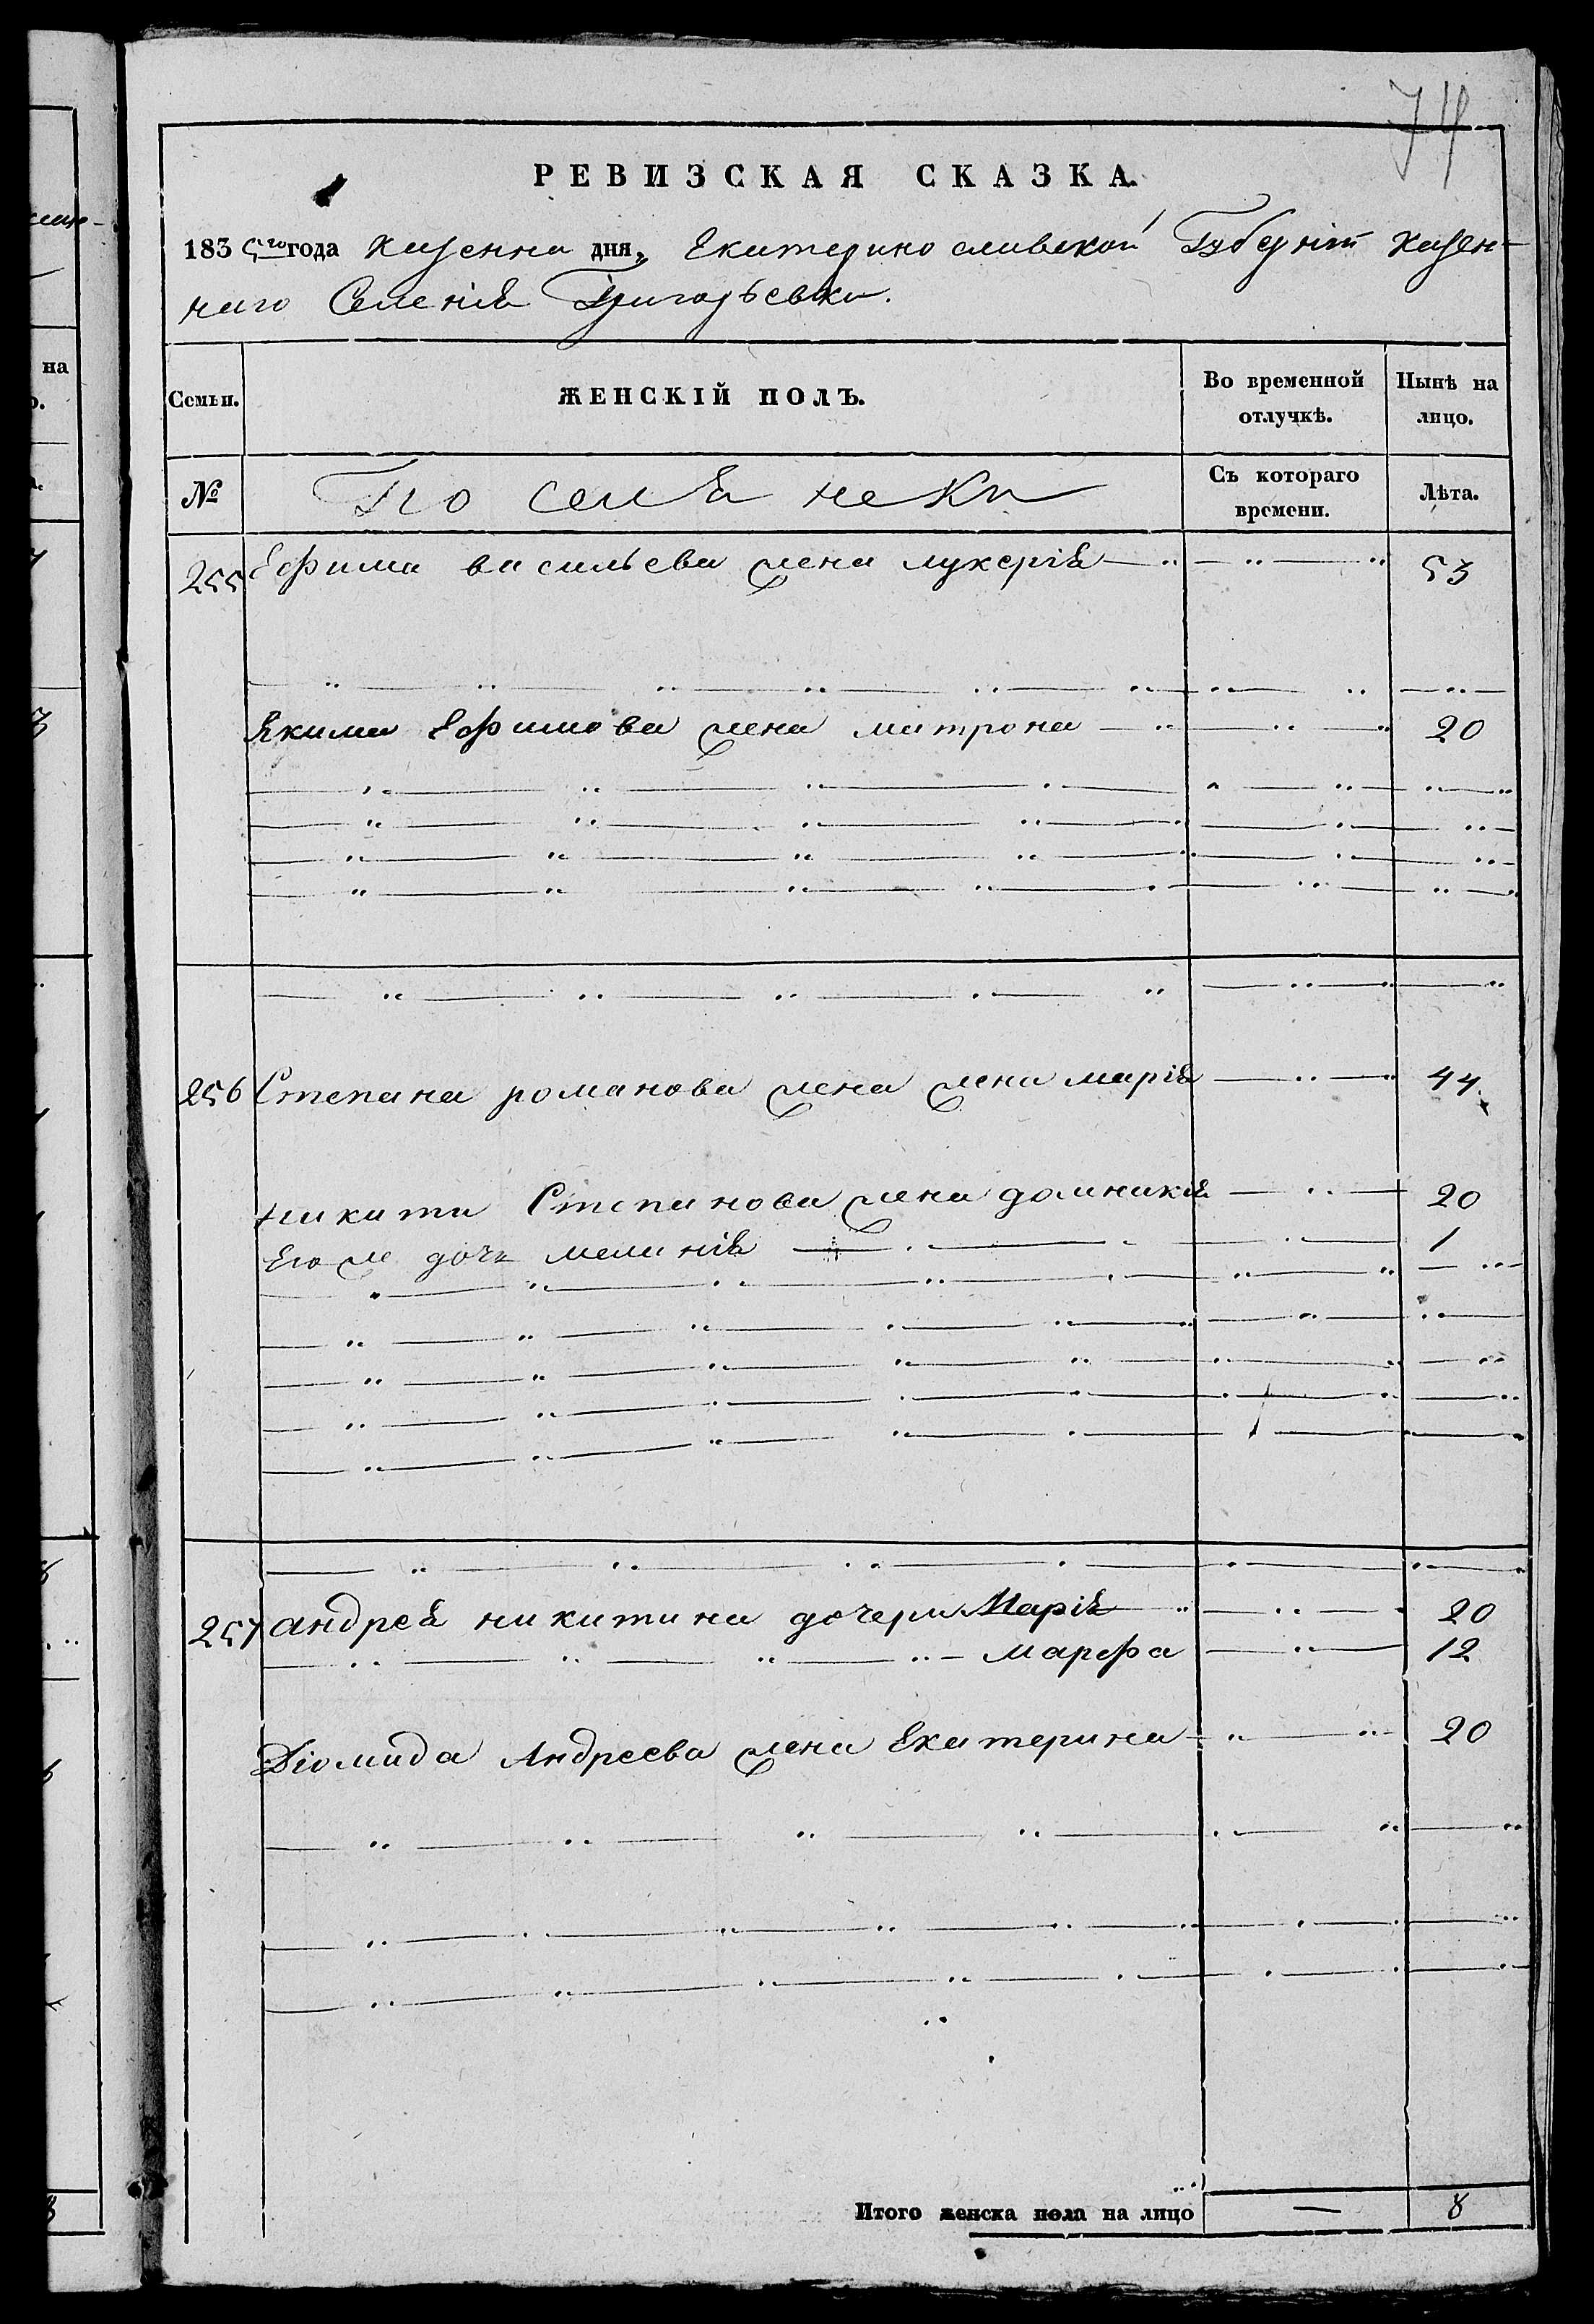 74
РЕВИЗСКАЯ СКАЗКА.
1835го года дня, Екатеринославской Губерніи казен-
наго Селенія Григорьевки.
Семьи.
ЖЕНСКІЙ ПОЛЪ.
Во временной отлучкѣ.
Нынѣ на лицо.
№
Поселянеки
Съ котораго времени.
Лѣта.
255 Ефима васильева жена лукерія 53
Якима Ефимова жена матрона 20
256 Степана романова жена жена марія 44
никити Степанова жена домникія 20
Его ж дочь меланія 1
257 андрея никитина дочери Марія 20
марфа 12
Діомида Андреева жена Екатерина 20
Итого женска пола на лицо — 8
на